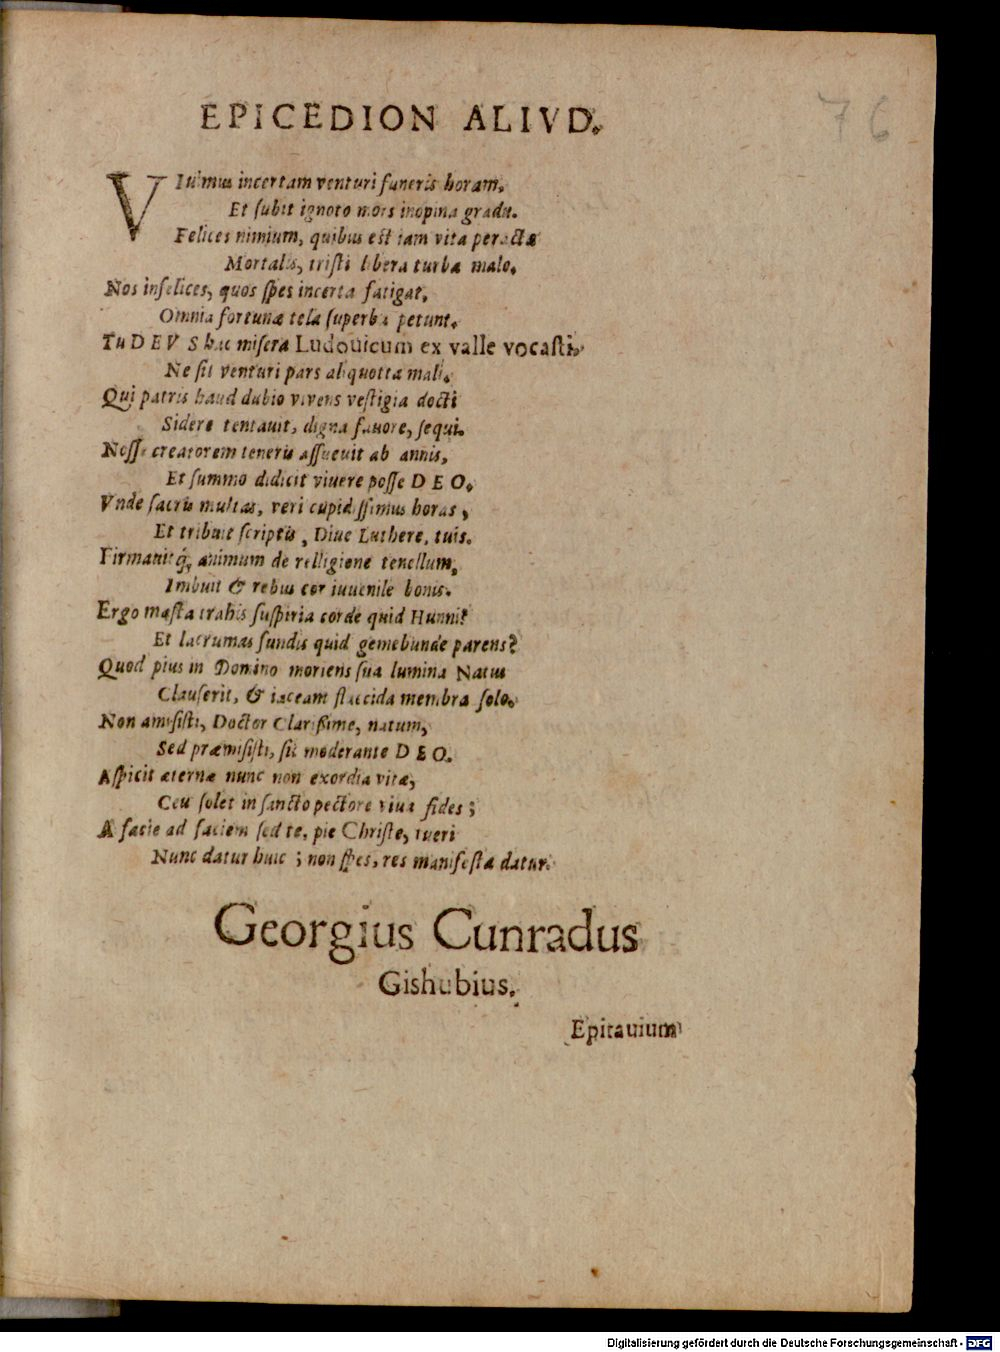 76
EPICEDION ALIVD.
VIuimus incertam venturi funeris horam,
Et ſubit ignoto mors inopina gradu.
Felices nimium, quibus est iam vita peracta
Mortalis, triſti libera turba malo.
Nos infelices, quos ſpes incerta fatigat,
Omnia fortunæ tela ſuperba petunt.
Tu DEVS hac miſera Ludouicum ex valle vocaſti,
Ne ſit venturi pars aliquotta mali.
Qui patris haud dubio vivens veſtigia docti
Sidere tentauit, digna fauore, ſequi.
Noſſe creatorem teneris aſſueuit ab annis,
Et ſummo didicit viuere poſſe DEO.
Vnde ſacris multas, veri cupidiſſimus horas,
Et tribuit ſcriptis, Diue Luthere, tuis.
Firmauitq́, animum de relligione tenellum,
Imbuit & rebus cor iuuenile bonis.
Ergo mæſta trahis ſuſpiria corde quid Hunni?
Et lacrumas fundis quid gemebunde parens?
Quod pius in Domino moriens ſua lumina Natus
Clauſerit, & iaceant flaccida membra ſolo.
Non amiſiſti, Doctor Clarißime, natum,
Sed præmiſiſti, ſic moderante DEO.
Aſpicit æternæ nunc non exordia vitæ,
Ceu ſolet in ſancto pectore viua fides;
A facie ad faciem ſed te, pie Chriſte, tueri
Nunc datur huic; non ſpes, res manifeſta datur.
Georgius Cunradus
Gishubius.
Epitauium
Digitalisierung gefördert durch die Deutsche Forschungsgemeinschaft - DFG